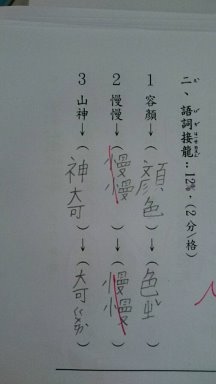 二、語詞接龍：12%，(2分/格)
1 容顏→(顏色)→(色ㄓˇ)
2 慢慢→(慢慢)→(慢慢)
3 山神→(神奇)→(奇ㄍㄨㄞˋ)